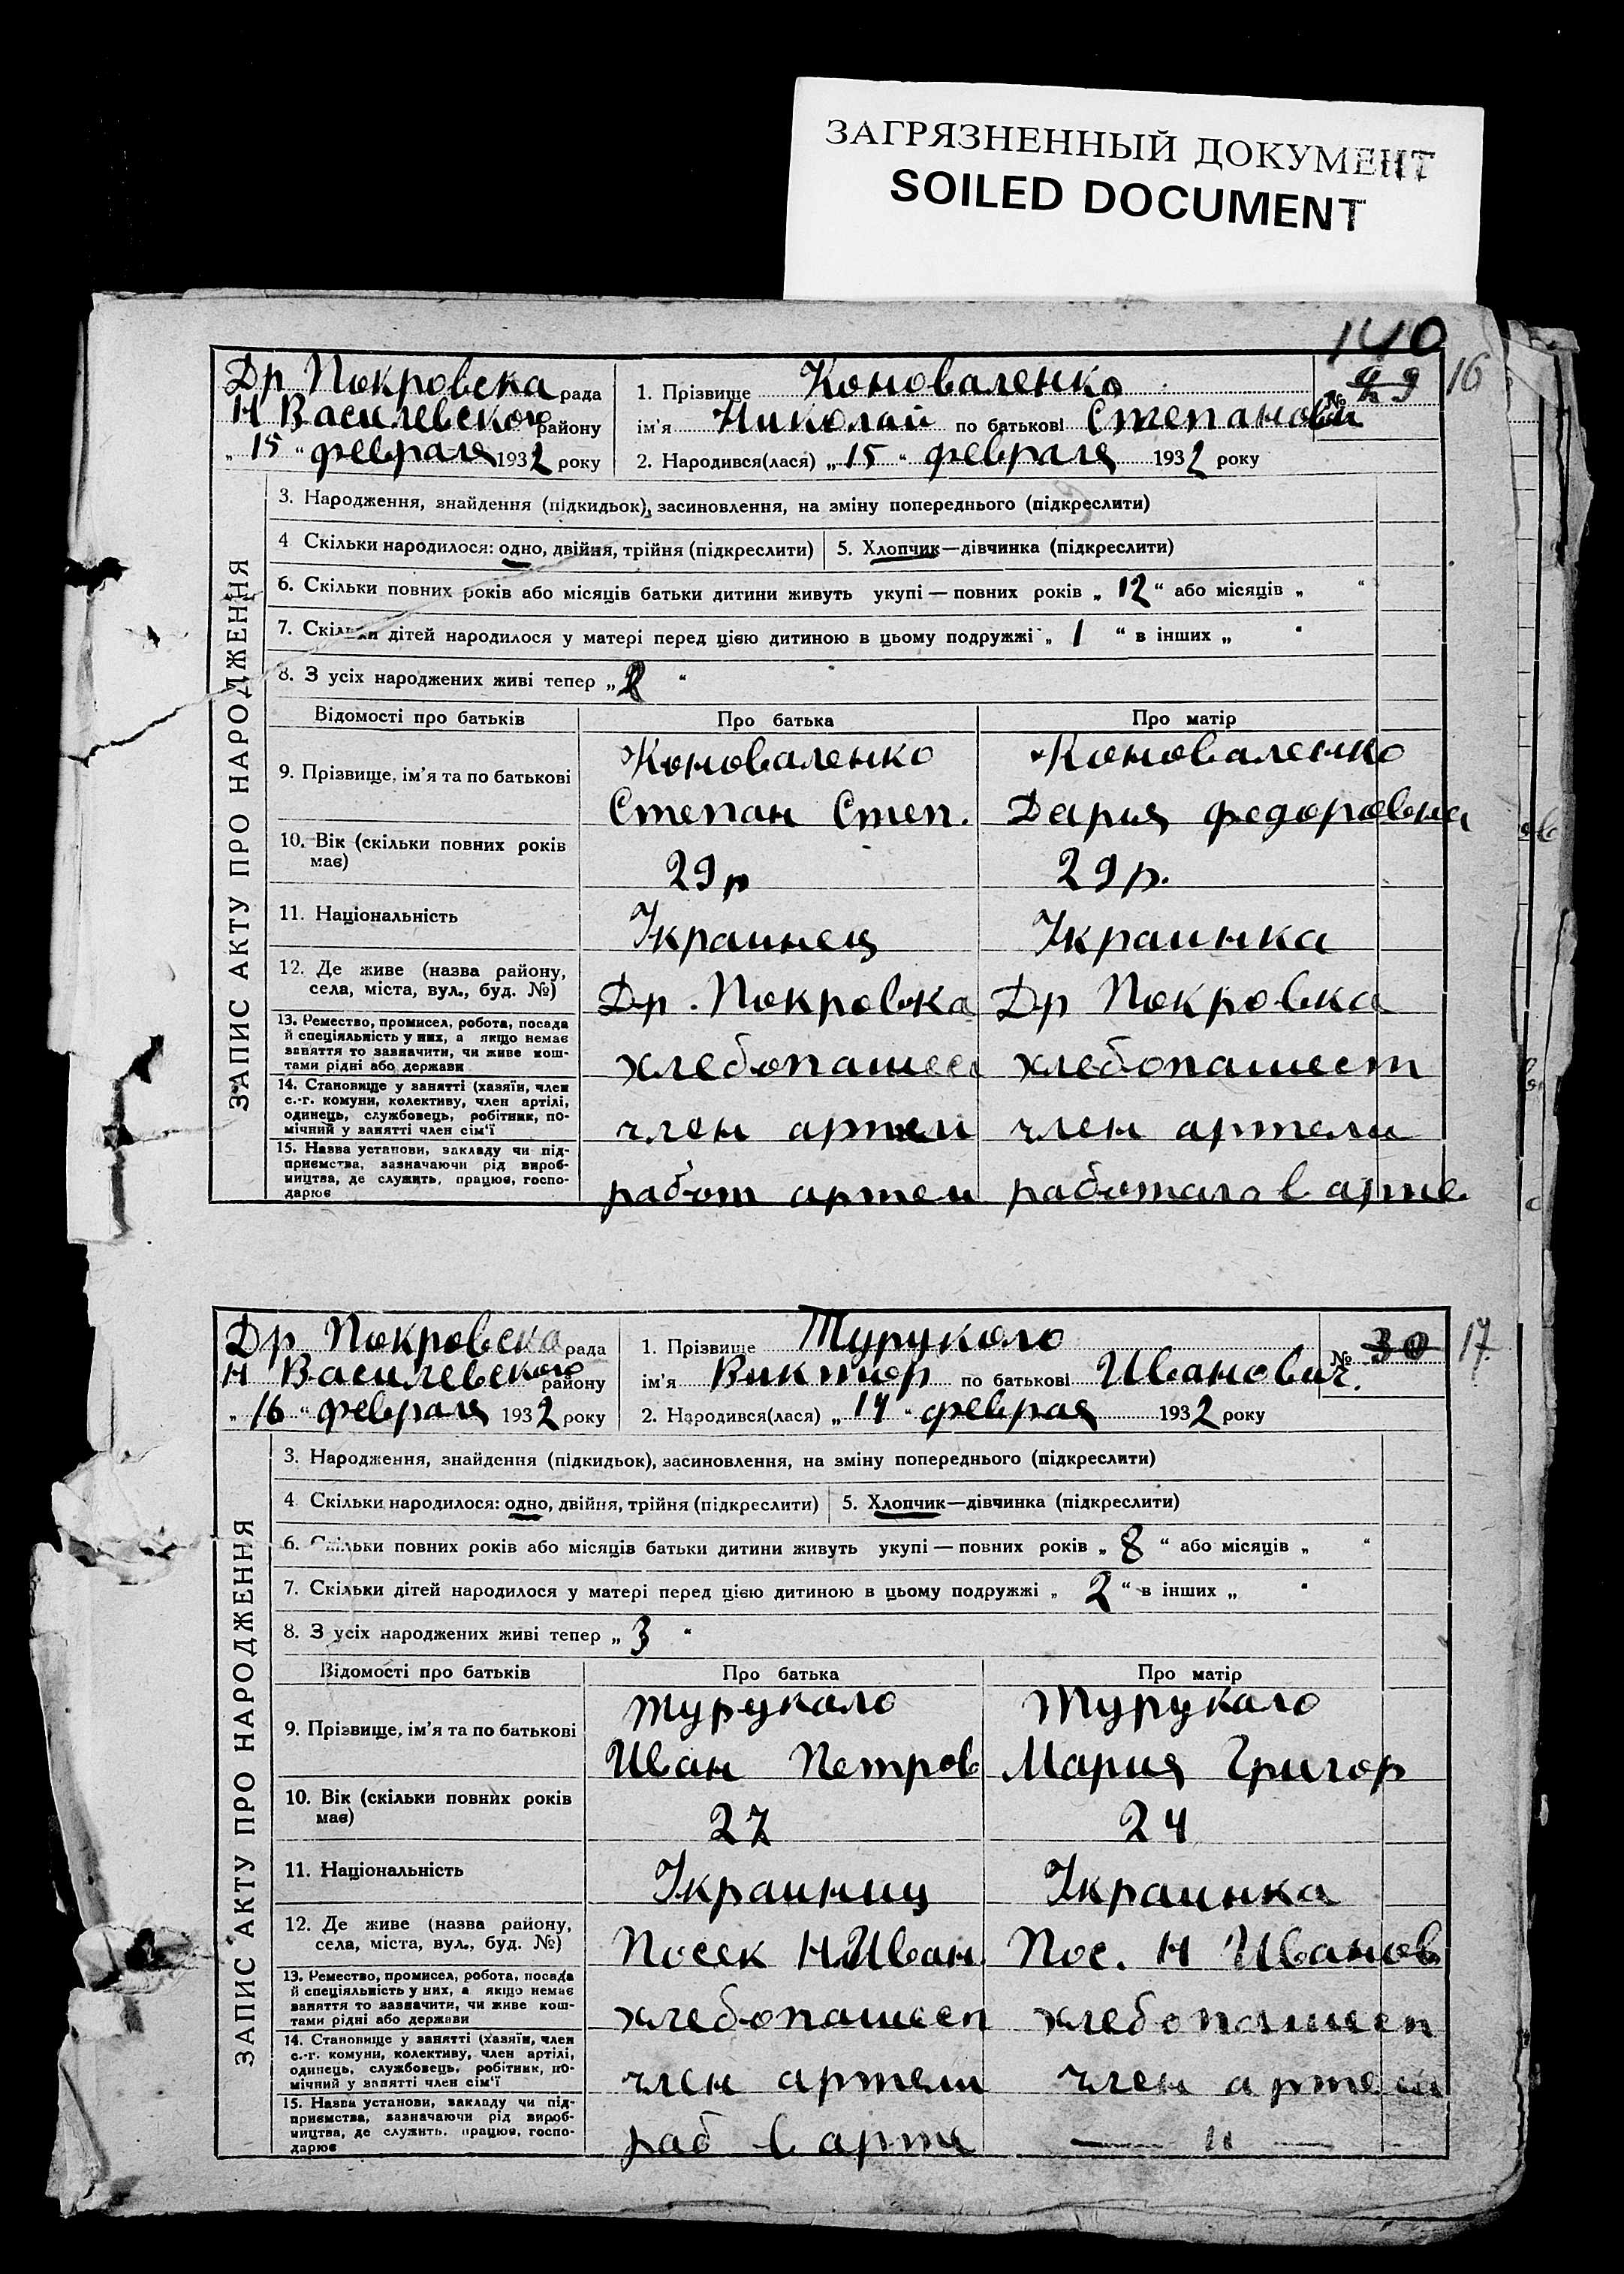 ЗАГРЯЗНЕННЫЙ ДОКУМЕНТ
SOILED DOCUMENT
140
16
Др Покровска рада
Н Василевского району
„15“ февраля 1932 року
1. Прізвище Коноваленко
ім'я Николай по батькові Степанови
№
2. Народився(лася) „15“ февраля 1932 року
ЗАПИС АКТУ ПРО НАРОДЖЕННЯ
3. Народження, знайдення (підкидьок), засиновлення, на зміну попереднього (підкреслити)
4 Скільки народилося: одно, двійня, трійня (підкреслити) 5. Хлопчик—дівчинка (підкреслити)
6. Скільки повних років або місяців батьки дитини живуть укупі — повних років „12“ або місяців „ “
7. Скільки дітей народилося у матері перед цією дитиною в цьому подружжі „1“ в інших „ “
8. З усіх народжених живі тепер „2“
Відомості про батьків Про батька Про матір
9. Прізвище, ім'я та по батькові
Коноваленко Коноваленко
Степан Степ. Дария Федоровна
10. Вік (скільки повних років має)
29р 29р.
11. Національність Украинец Украинка
12. Де живе (назва району,
села, міста, вул., буд. №) Др. Покровка Др Покровка
13. Ремество, промисел, робота, посада
й спеціяльність у них, а якщо немає
заняття то зазначити, чи живе кош-
тами рідні або держави
хлебопашест хлебопашест
14. Становище у занятті (хазяїн, член
с.-г. комуни, колективу, член артілі,
одинець, службовець, робітник, по-
мічний у занятті член сім'ї
член артели член артели
15. Назва установи, закладу чи під-
приємства, зазначаючи рід вироб-
ництва, де служить, працює, госпо-
дарює
работ артели работала в арте
17
Др Покровска рада
Н Василевского району
„16“ февраля 1932 року
1. Прізвище Турукало
ім'я Виктор по батькові Иванович.
№ 30
2. Народився(лася) „14“ феврая 1932 року
ЗАПИС АКТУ ПРО НАРОДЖЕННЯ
3. Народження, знайдення (підкидьок), засиновлення, на зміну попереднього (підкреслити)
4 Скільки народилося: одно, двійня, трійня (підкреслити) 5. Хлопчик—дівчинка (підкреслити)
6. Скільки повних років або місяців батьки дитини живуть укупі — повних років „8“ або місяців „ “
7. Скільки дітей народилося у матері перед цією дитиною в цьому подружжі „2“ в інших „ “
8. З усіх народжених живі тепер „3“
Відомості про батьків Про батька Про матір
9. Прізвище, ім'я та по батькові
Турукало Турукало
Иван Петров Мария Григор
10. Вік (скільки повних років має)
27 24
11. Національність Украиниц Украинка
12. Де живе (назва району,
села, міста, вул., буд. №) Посек Н.Иван. Пос. Н Иванов
13. Ремество, промисел, робота, посада
й спеціяльність у них, а якщо немає
заняття то зазначити, чи живе кош-
тами рідні або держави
хлебопашест хлебопашест
14. Становище у занятті (хазяїн, член
с.-г. комуни, колективу, член артілі,
одинець, службовець, робітник, по-
мічний у занятті член сім'ї
член артели член артели
15. Назва установи, закладу чи під-
приємства, зазначаючи рід вироб-
ництва, де служить, працює, госпо-
дарює
раб в арте — " —